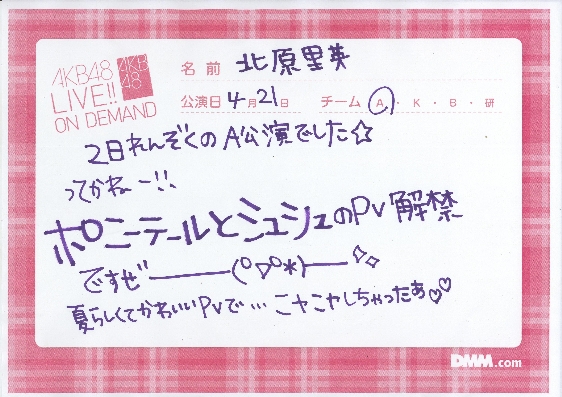 AKB48
LIVE!!
ON DEMAND
AKB
48
名前 北原里英
公演日 4月21日 チーム A・K・B・研
2日れんぞくのA公演でした☆
ってかねー!!
ポニーテールとシュシュのPV解禁
ですぜ———(°▽°*)——☆
夏らしくてかわいいPVで…ニヤニヤしちゃったぁ♡♡
DMM.com